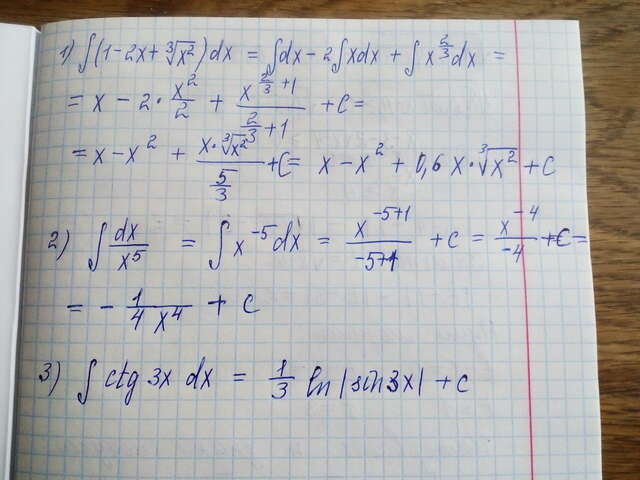 1) ∫(1-2x+∛x²)dx = ∫dx - 2∫xdx + ∫x^(2/3)dx =
= x - 2·x²/2 + x^(2/3+1)/(2/3+1) + c =
= x - x² + x·∛x²/(5/3) + c = x - x² + 0,6x·∛x² + c
2) ∫dx/x⁵ = ∫x⁻⁵dx = x^(-5+1)/(-5+1) + c = x⁻⁴/-4 + c =
= - 1/(4x⁴) + c
3) ∫ctg 3x dx = 1/3 ln|sin3x| + c